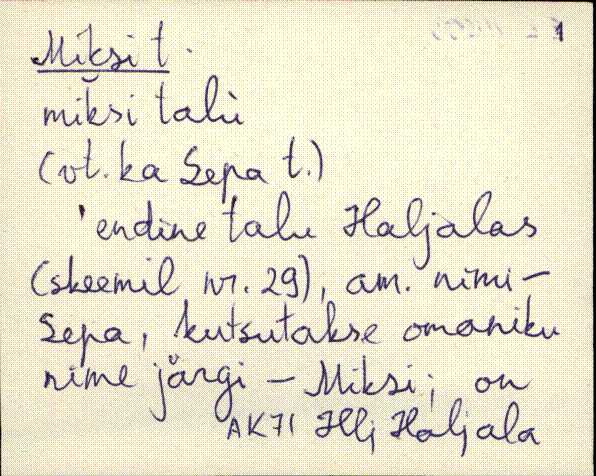 1
Miksi t.
mĭksi talù
(vt. ka Sepa t.)
'endine talu Haljalas
(skeemil nr. 29), am. nimi –
Sepa, kutsutakse omaniku
nime järgi – Miksi; on
AK71 Hlj Haljala